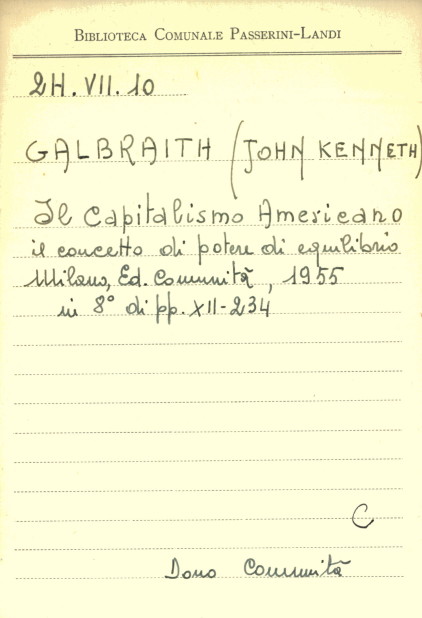 BIBLIOTECA COMUNALE PASSERINI-LANDI
2H. VII. 10
GALBRAITH (JOHN KENNETH)
Il Capitalismo Americano
il concetto di potere di equilibrio
Milano, Ed. Comunità, 1955
in 8° di pp. XII-234
C
Dono Comunità